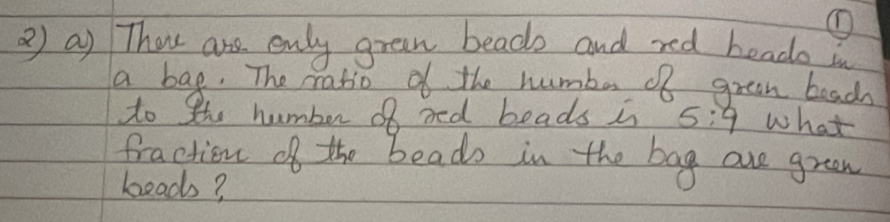 ①
2) a) There are only green beads and red beads in
a bag. The ratio of the number of green beads
to the number of red beads is 5:9 what
fraction of the beads in the bag are green
beads?